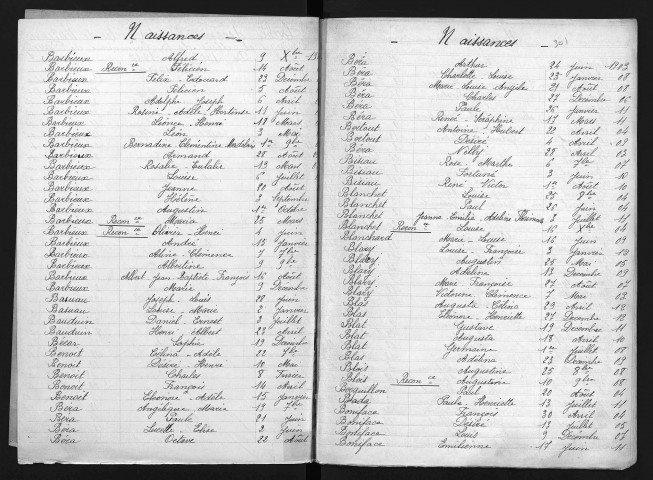 Naissances
Barbieux Alfred 9 Xbre
Barbieux Recon ce Félicien 14 Août
Barbieux Félix-Edouard 23 Décembre
Barbieux Félicien 5 Août
Barbieux Adolphe Joseph 6 Avril
Barbieux Rosine-Adèle-Hortense 11 Juin
Barbieux Léonce-Henri 18 Mars
Barbieux Léon 3 Mai
Barbieux Bernadine-Clémentine 1er 9bre
Barbieux Armand 28 Août
Barbieux Rosalie-Eulalie 19 Mars
Barbieux Louise 6 Juillet
Barbieux Jeanne 20 Août
Barbieux Hélène 3 Septembre
Barbieux Augustin 1er Octobre
Barbieux Recon ce Maria 25 Mars
Barbieux Recon ce Olivier-Henri 4 Juin
Barbieux André 13 Janvier
Barbieux Aline-Clémence 7 7bre
Barbieux Albertine 3 9bre
Barbieux Albert-Jean-Baptiste-François 16 Août
Barbieux Maria 9 Décembre
Basuau Joseph-Louis 22 Juin
Basuau Louise-Marie 2 Janvier
Bauduin Daniel-Ernest 2 Juillet
Bauduin Henri-Albert 23 Avril
Bécar Sophie 19 Décembre
Benoit Edina-Adèle 22 7bre
Benoit Désiré-Henri 10 Mai
Benoit Charles 8 Février
Benoit François 14 Avril
Benoit Eléonore-Adèle 15 Janvier
Béra Angélique-Maria 19 7bre
Béra Paule 21 Juin
Béra Lucille-Elise 2 Juin
Béra Octave 22 Août
Naissances 301
Béra Arthur 24 Juin 1903
Béra Charlotte-Louise 23 Janvier 08
Béra Marie-Louise-Angèle 21 Août 08
Béra Charles 27 Décembre 06
Béra Paule 26 Janvier 11
Béra Renée-Séraphine 17 Mars 11
Berlout Antoine-Hubert 22 Avril 04
Berlout Désiré 4 Avril 09
Béra Nelly 28 Avril 03
Besiau Rose-Marthe 6 7bre 07
Besiau Fortuné 3 Juin 10
Besiau René-Victor 1er Août 10
Blanchet Louise 25 9bre 04
Blanchet Paul 25 Juin 04
Blanchet Jeanne-Emilie-Adeline 3 Juillet 11
Blanchet Recon ce Louise 16 Xbre 04
Blanchard Marie-Louise 16 Juin 09
Blary Louise-Françoise 3 Janvier 10
Blary Augustin 25 Mai 05
Blary Adeline 13 Décembre 09
Blary Marie-Françoise 27 Août 07
Blary Victorine-Clémence 7 Mai 03
Blas Augusta-Célina 29 Avril 12
Blas Eléonore-Henriette 27 Décembre 12
Blat Gustave 19 Décembre 11
Blat Augusta 18 Avril 10
Blat Germaine 1er Juillet 08
Blas Adelina 23 Décembre 09
Blois Augustine 25 8bre 08
Blois Recon ce Augustine 10 9bre 08
Bocquillon Paul 20 Août 04
Boda Paule-Henriette 13 Juillet 11
Boniface François 30 Avril 04
Boniface Désiré 13 Juillet 05
Boniface Louis 9 Décembre 07
Boniface Emilienne 19 Juin 11